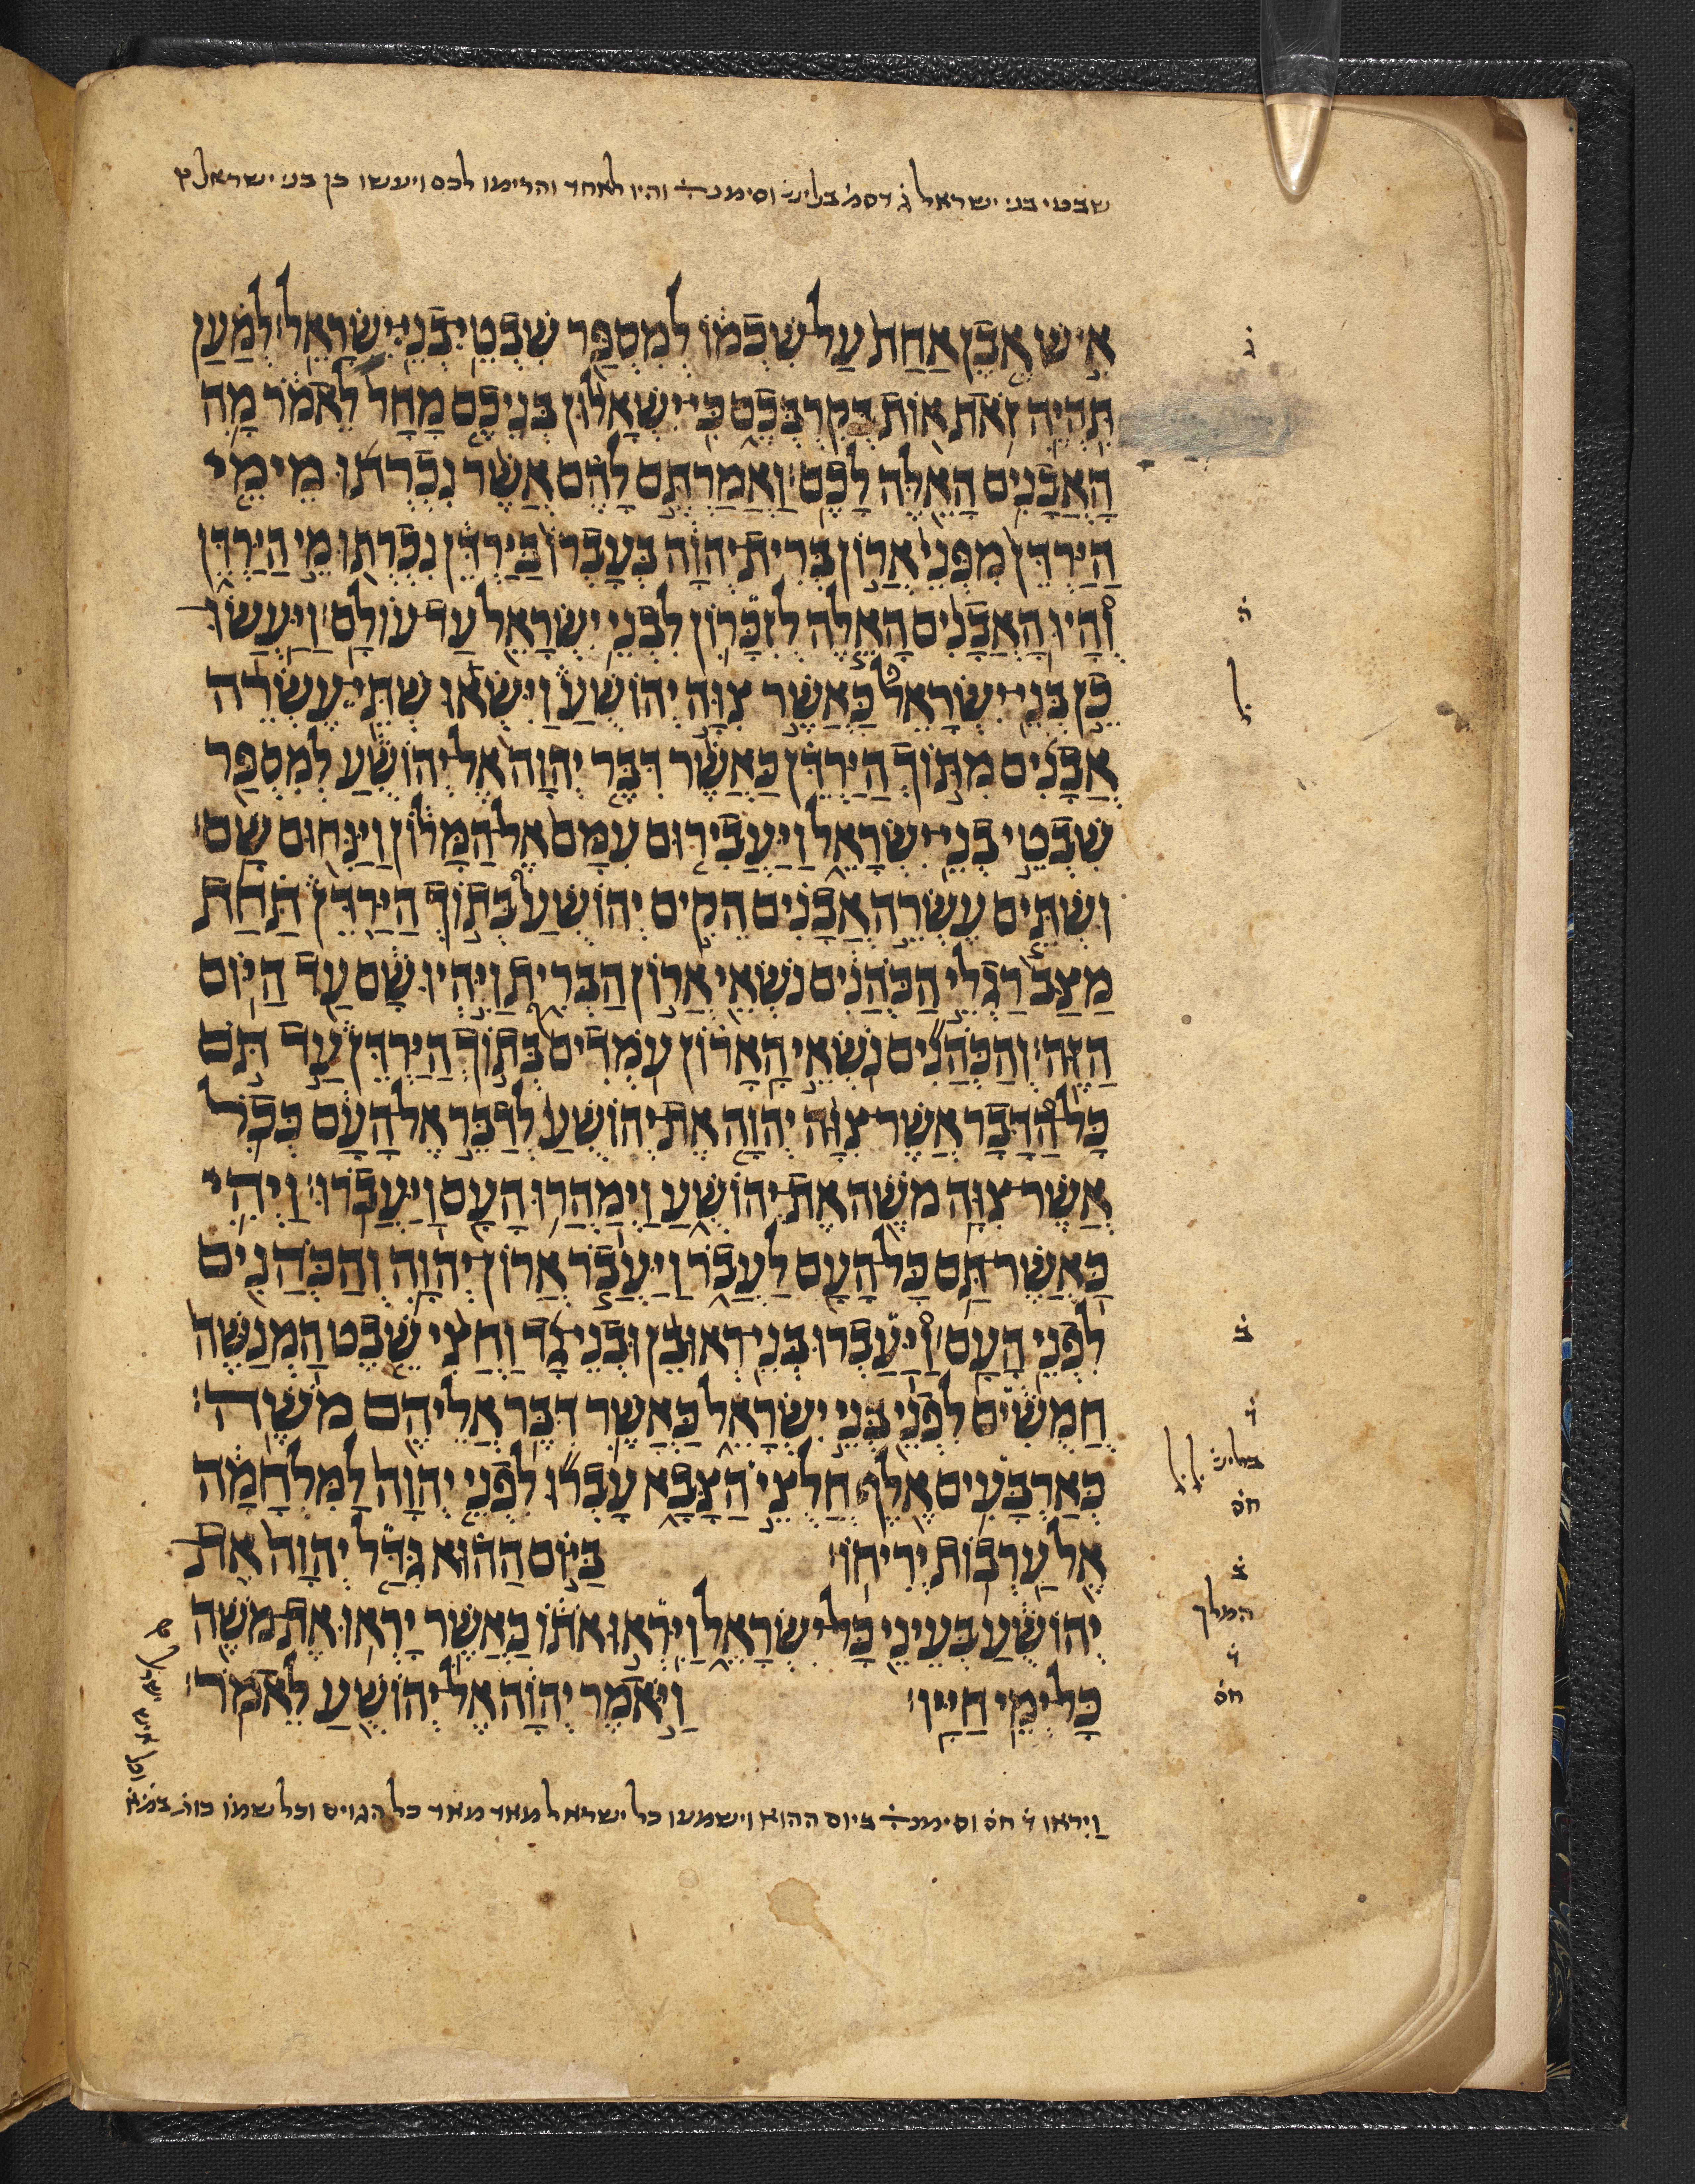 שבטי בני ישראל ג דסמ בליש וסימנ והיו לאחד והרימו לכם ויעשו כן בני ישראל
אִישׁ אֶבֶן אַחַת עַל שִׁכְמוֹ לְמִסְפַּר שִׁבְטֵי בְנֵי יִשְׂרָאֵל׃ לְמַעַן
ג
תִּהְיֶה זֹאת אוֹת בְּקִרְבְּכֶם כִּי יִשְׁאָלוּן בְּנֵיכֶם מָחָר לֵאמֹר מָה
הָאֲבָנִים הָאֵלֶּה לָכֶם׃ וַאֲמַרְתֶּם לָהֶם אֲשֶׁר נִכְרְתוּ מֵימֵי
הַיַּרְדֵּן מִפְּנֵי אֲרוֹן בְּרִית יְהוָה בְּעָבְרוֹ בַּיַּרְדֵּן נִכְרְתוּ מֵי הַיַּרְדֵּן
וְהָיוּ הָאֲבָנִים הָאֵלֶּה לְזִכָּרוֹן לִבְנֵי יִשְׂרָאֵל עַד עוֹלָם׃ וַיַּעֲשׂוּ
ה
כֵן בְּנֵי יִשְׂרָאֵל כַּאֲשֶׁר צִוָּה יְהוֹשֻׁעַ וַיִּשְׂאוּ שְׁתֵּי עֶשְׂרֵה
ל
אֲבָנִים מִתּוֹךְ הַיַּרְדֵּן כַּאֲשֶׁר דִּבֶּר יְהוָה אֶל יְהוֹשֻׁעַ לְמִסְפַּר
שִׁבְטֵי בְנֵי יִשְׂרָאֵל וַיַּעֲבִרוּם עִמָּם אֶל הַמָּלוֹן וַיַּנִּחוּם שָׁם׃
וּשְׁתֵּים עֶשְׂרֵה אֲבָנִים הֵקִים יְהוֹשֻׁעַ בְּתוֹךְ הַיַּרְדֵּן תַּחַת
מַצַּב רַגְלֵי הַכֹּהֲנִים נֹשְׂאֵי אֲרוֹן הַבְּרִית וַיִּהְיוּ שָׁם עַד הַיּוֹם
הַזֶּה׃ וְהַכֹּהֲנִים נֹשְׂאֵי הָאָרוֹן עֹמְדִים בְּתוֹךְ הַיַּרְדֵּן עַד תֹּם
כָּל הַדָּבָר אֲשֶׁר צִוָּה יְהוָה אֶת יְהוֹשֻׁעַ לְדַבֵּר אֶל הָעָם כְּכֹל
אֲשֶׁר צִוָּה מֹשֶׁה אֶת יְהוֹשֻׁעַ וַיְמַהֲרוּ הָעָם וַיַּעֲבֹרוּ׃ וַיְהִי
כַּאֲשֶׁר תַּם כָּל הָעָם לַעֲבֹר וַיַּעֲבֹר אֲרוֹן יְהוָה וְהַכֹּהֲנִים
לִפְנֵי הָעָם׃ וַיַּעַבְרוּ בְּנֵי רְאוּבֵן וּבְנֵי גָד וַחֲצִי שֵׁבֶט הַמְנַשֶּׁה
ב
חֲמֻשִׁים לִפְנֵי בְּנֵי יִשְׂרָאֵל כַּאֲשֶׁר דִּבֶּר אֲלֵיהֶם מֹשֶׁה׃
ד
כְּאַרְבָּעִים אֶלֶף חֲלוּצֵי הַצָּבָא עָבְרוּ לִפְנֵי יְהוָה לַמִּלְחָמָה
בליש ל ל
חס
אֶל עַרְבוֹת יְרִיחוֹ׃ בַּיּוֹם הַהוּא גִּדַּל יְהוָה אֶת
ב
יְהוֹשֻׁעַ בְּעֵינֵי כָּל יִשְׂרָאֵל וַיִּרְאוּ אֹתוֹ כַּאֲשֶׁר יָרְאוּ אֶת מֹשֶׁה
המלך
ד
כָּל יְמֵי חַיָּיו׃ וַיֹּאמֶר יְהוָה אֶל יְהוֹשֻׁעַ לֵאמֹר׃
חס
וַיִראו ד חס וסימנ ביום ההוא וישמעו כל ישראל מאד מאד כל הגוים וכל שמו